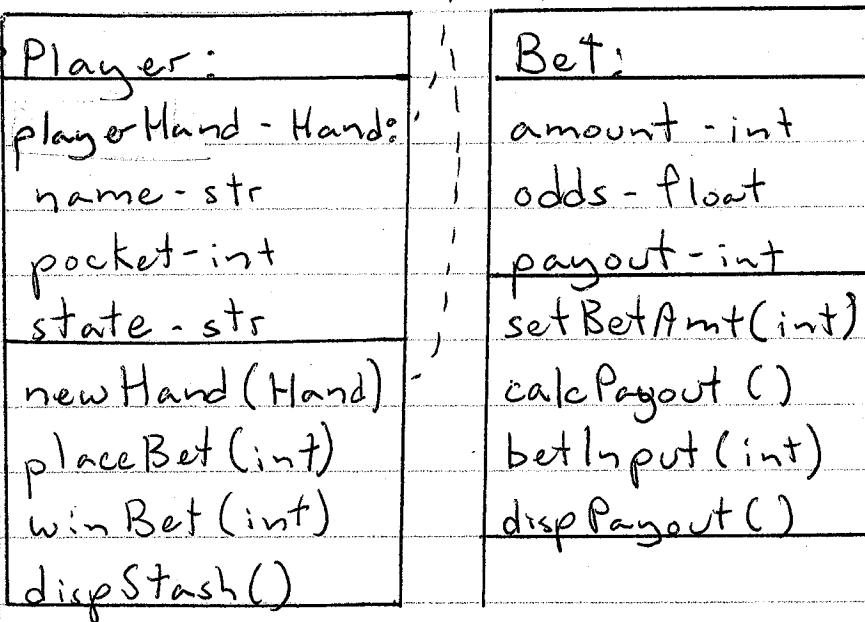 Player:
playerHand - Hand:
name - str
pocket - int
state - str
newHand(Hand)
placeBet(int)
winBet(int)
dispStash()
Bet:
amount - int
odds - float
payout - int
setBetAmt(int)
calcPayout()
betInput(int)
dispPayout()